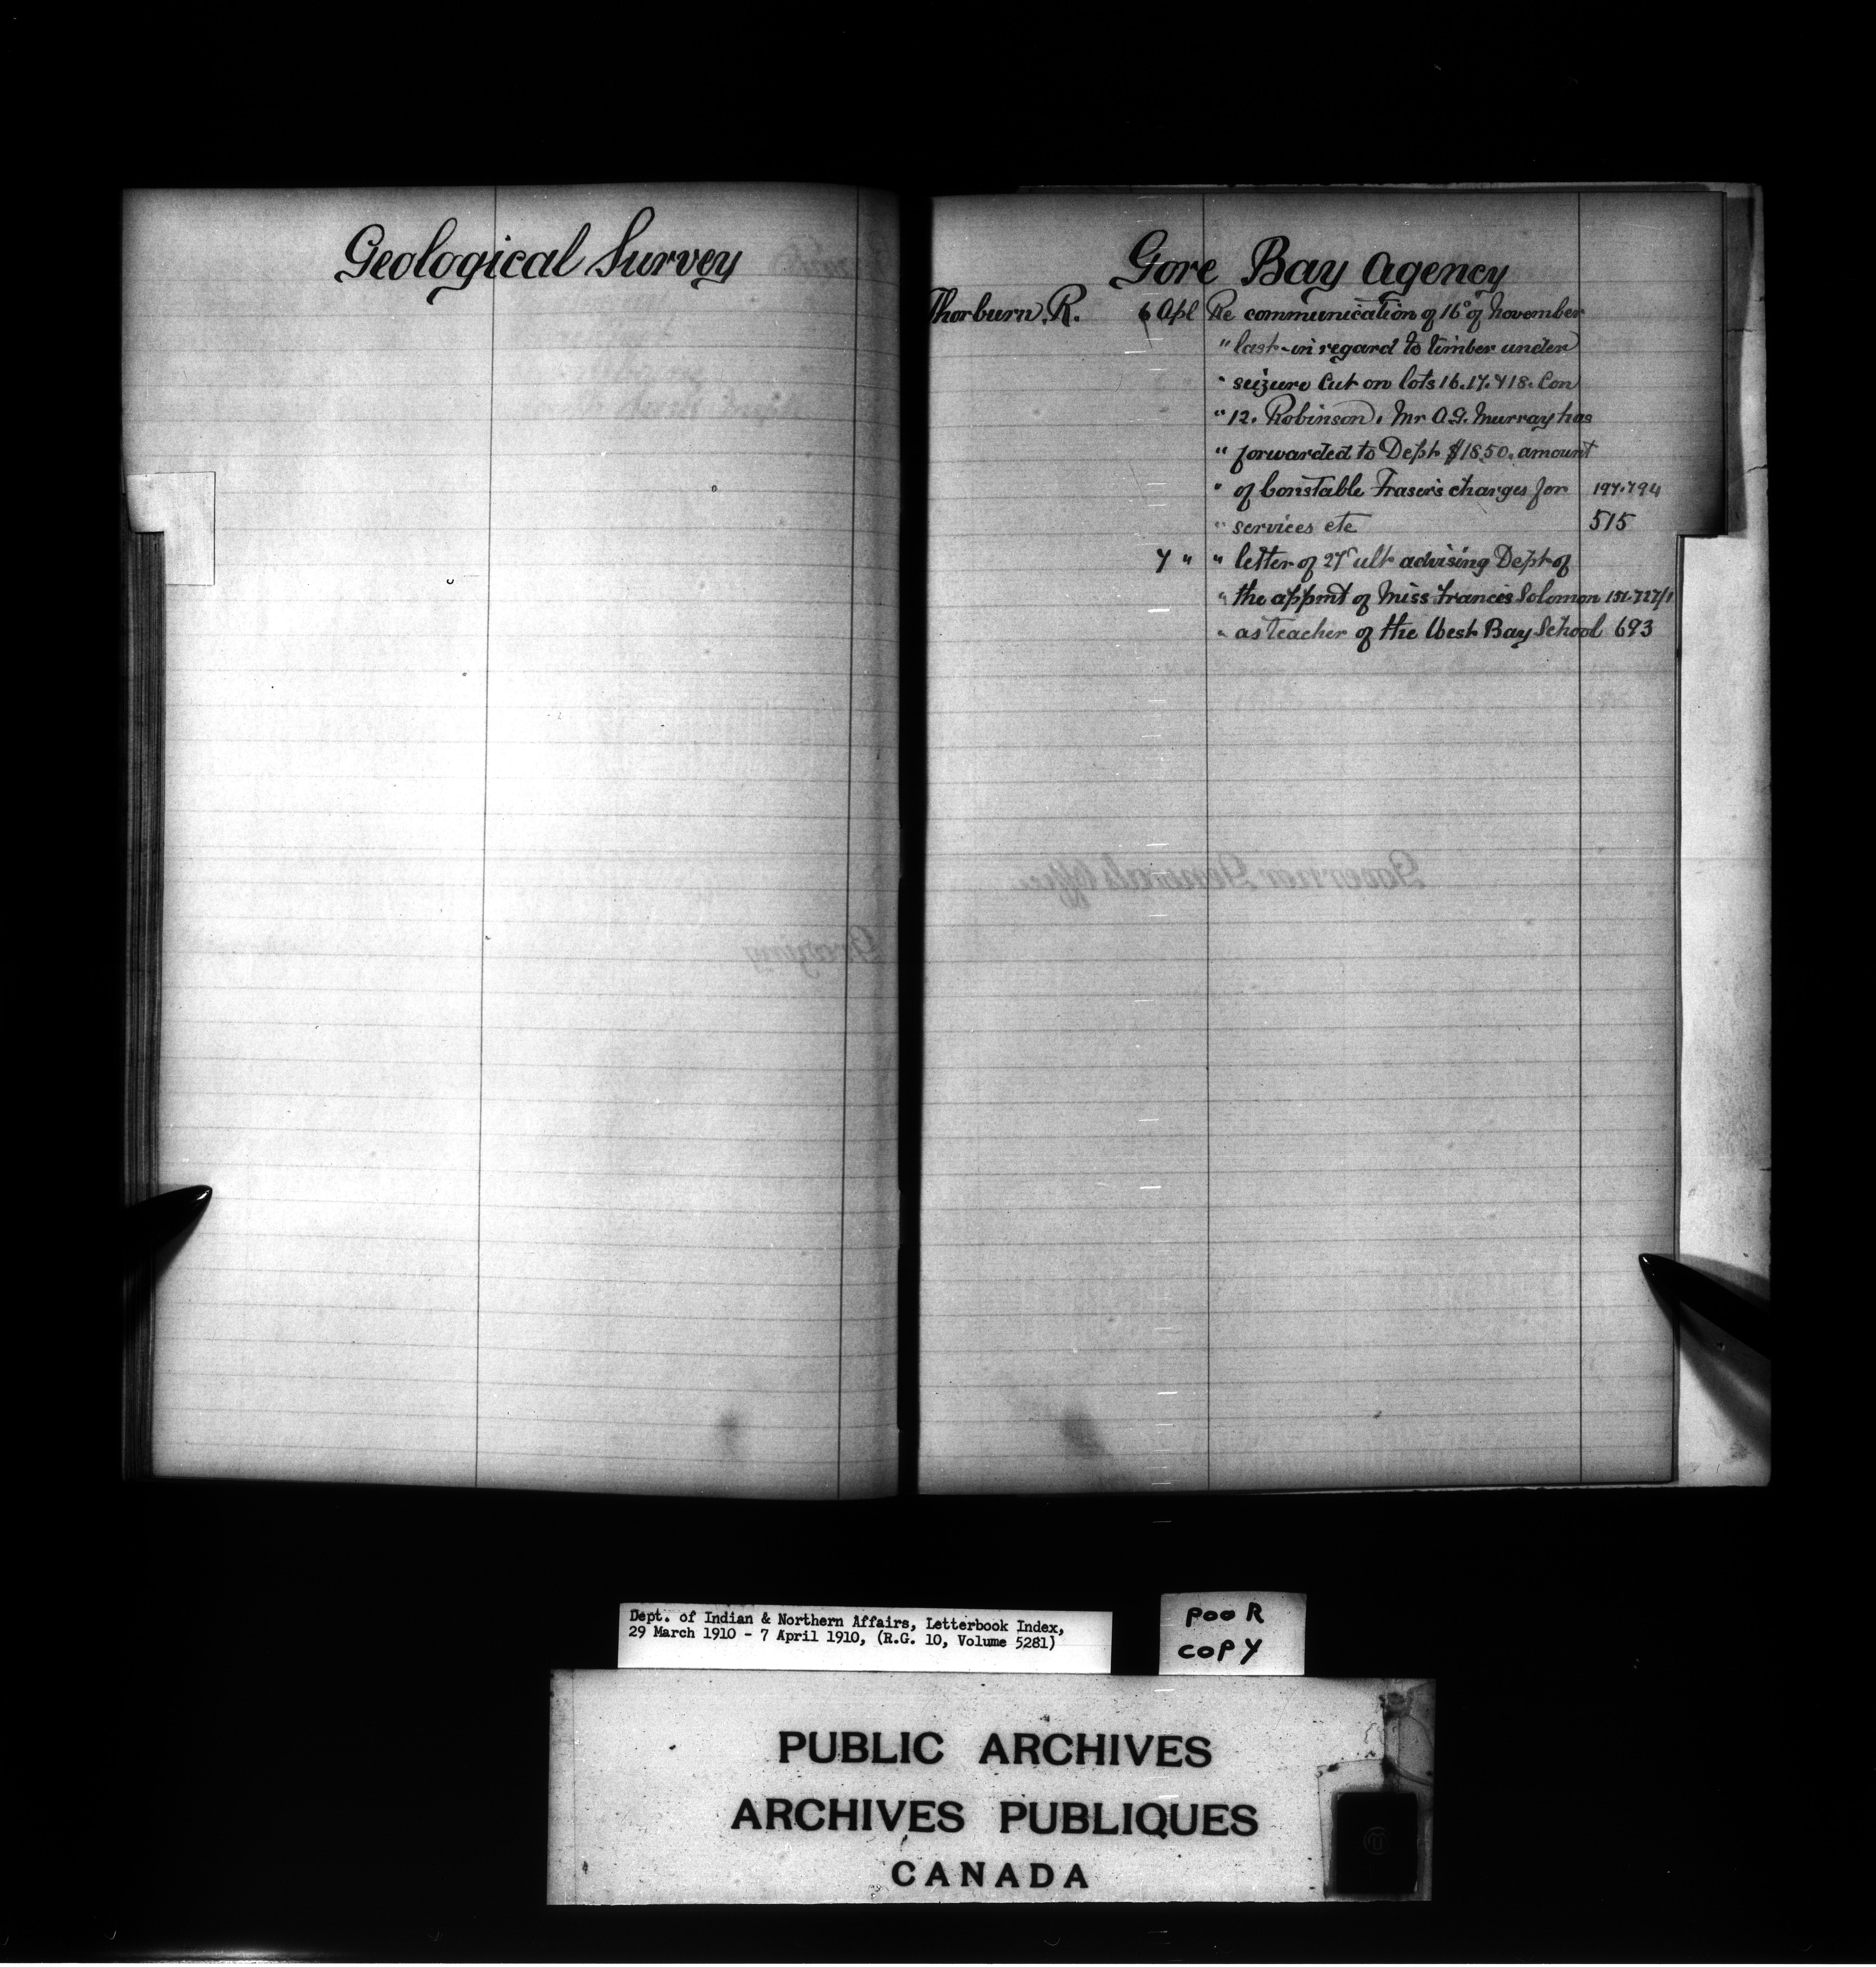 Geological Survey
Gore Bay Agency
Thorburn. R. 6 Apl Re communication of 16° of November
" last - in regard to timber under
" seizure cut on lots 16.17.&18. Con
" 12. Robinson. Mr A.G. Murray has
" forwarded to Dept $18.50. amount
" of Constable Fraser's charges for 197.794
" services etc 515
7 " " letter of 27 ult advising Dept of
" the appmt of Miss Frances Solomon 151.727/1
" as teacher of the West Bay School 693
Governor Generals Office
Grazing
Dept. of Indian & Northern Affairs, Letterbook Index,
29 March 1910 - 7 April 1910, (R.G. 10, Volume 5281)
POOR
COPY
PUBLIC ARCHIVES
ARCHIVES PUBLIQUES
CANADA